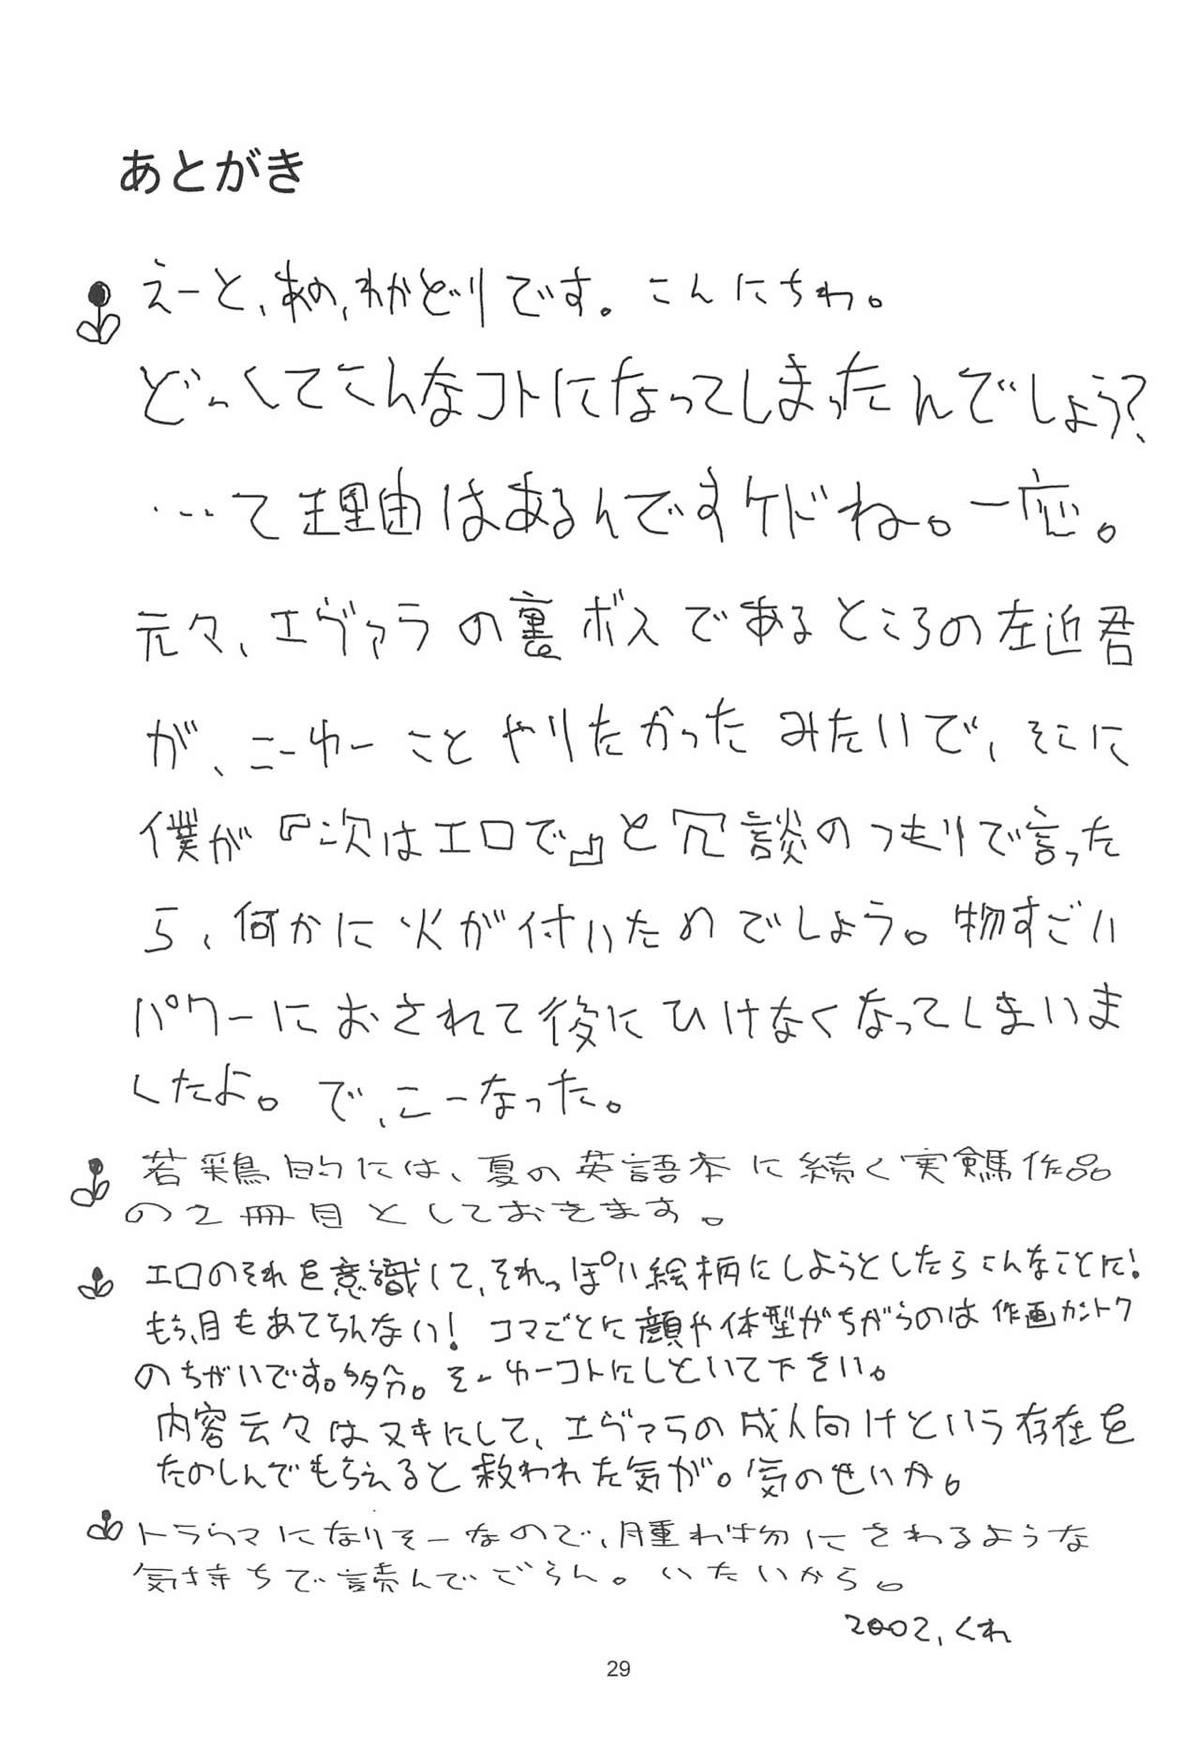 あとがき
えーと、あの、わかどりです。こんにちわ。
どーしてこんなコトになってしまったんでしょう?
…て理由はあるんですケドね。一応。
元々、エヴァラの裏ボスであるところの左近君
が、こーゆーことやりたかったみたいで、そこに
僕が『次はエロで』と冗談のつもりで言った
ら、何かに火が付いたのでしょう。物すごい
パワーにおされて後にひけなくなってしまいま
したよ。で、こーなった。
若鶏的には、夏の英語本に続く実験作品
の2冊目としておきます。
エロのそれを意識して、それっぽい絵柄にしようとしたらこんなことに!
もう、目もあてらんない!コマごとに顔や体型がちがうのは作画カントク
のちがいです。多分。そーゆーコトにしといて下さい。
内容云々はヌキにして、エヴァラの成人向けという存在を
たのしんでもらえると救われた気が。気のせいか。
トラウマになりそーなので、腫れ物にさわるような
気持ちで読んでごらん。いたいから。
2002,くれ
29